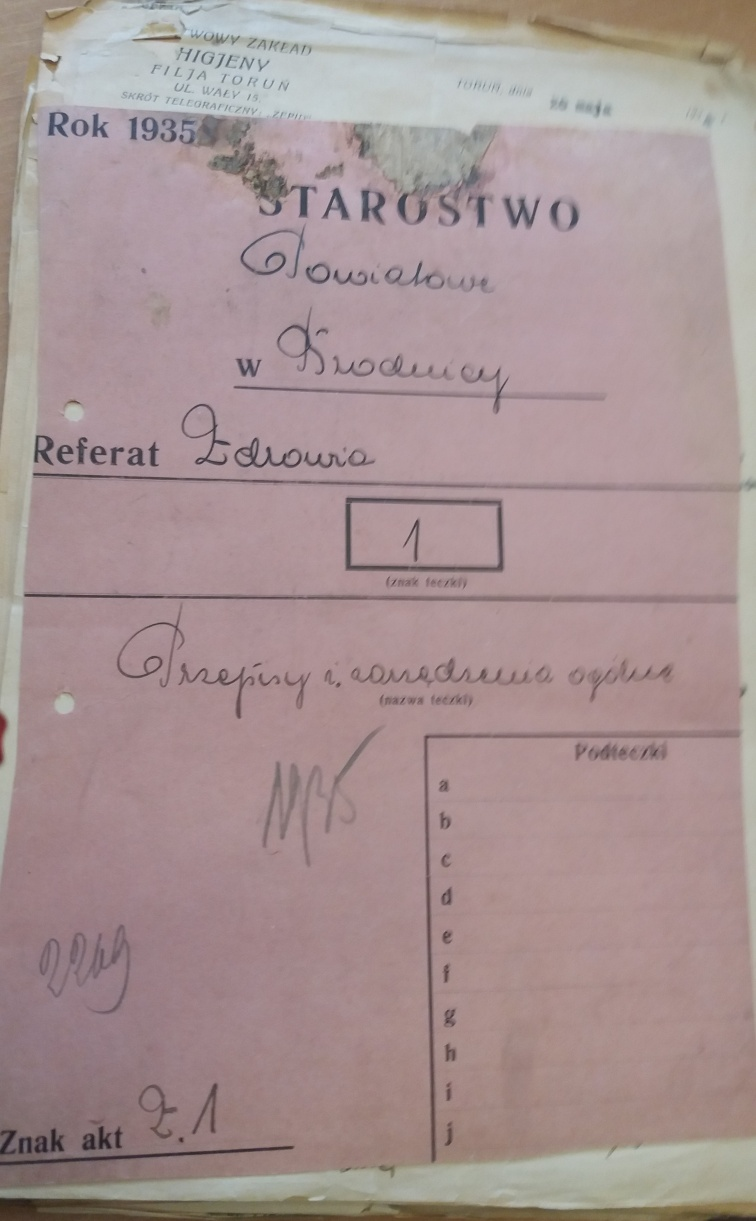 WOWY ZAKŁAD
HIGJENY
FILJA TORUŃ
UL. WAŁY 15.
SKRÓT TELEGRAFICZNY:
TORUŃ, dnia 26 maja
Rok 1935
STAROSTWO
Powiatowe
w Brodnicy
Referat Zdrowia
1
(znak teczki)
Przepisy i zarządzenia ogólne
(nazwa teczki)
1935
Podteczki
a
b
c
d
e
f
g
h
i
j
2249
Znak akt Z.1